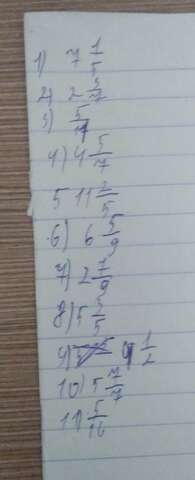 1) 7 1/5
2) 2 5/7
3) 5/14
4) 4 5/7
5 11 2/5
6) 6 5/9
7) 2 7/9
8) 5 3/5
9) 9 1/2
10) 5 7/7
11) 5/16